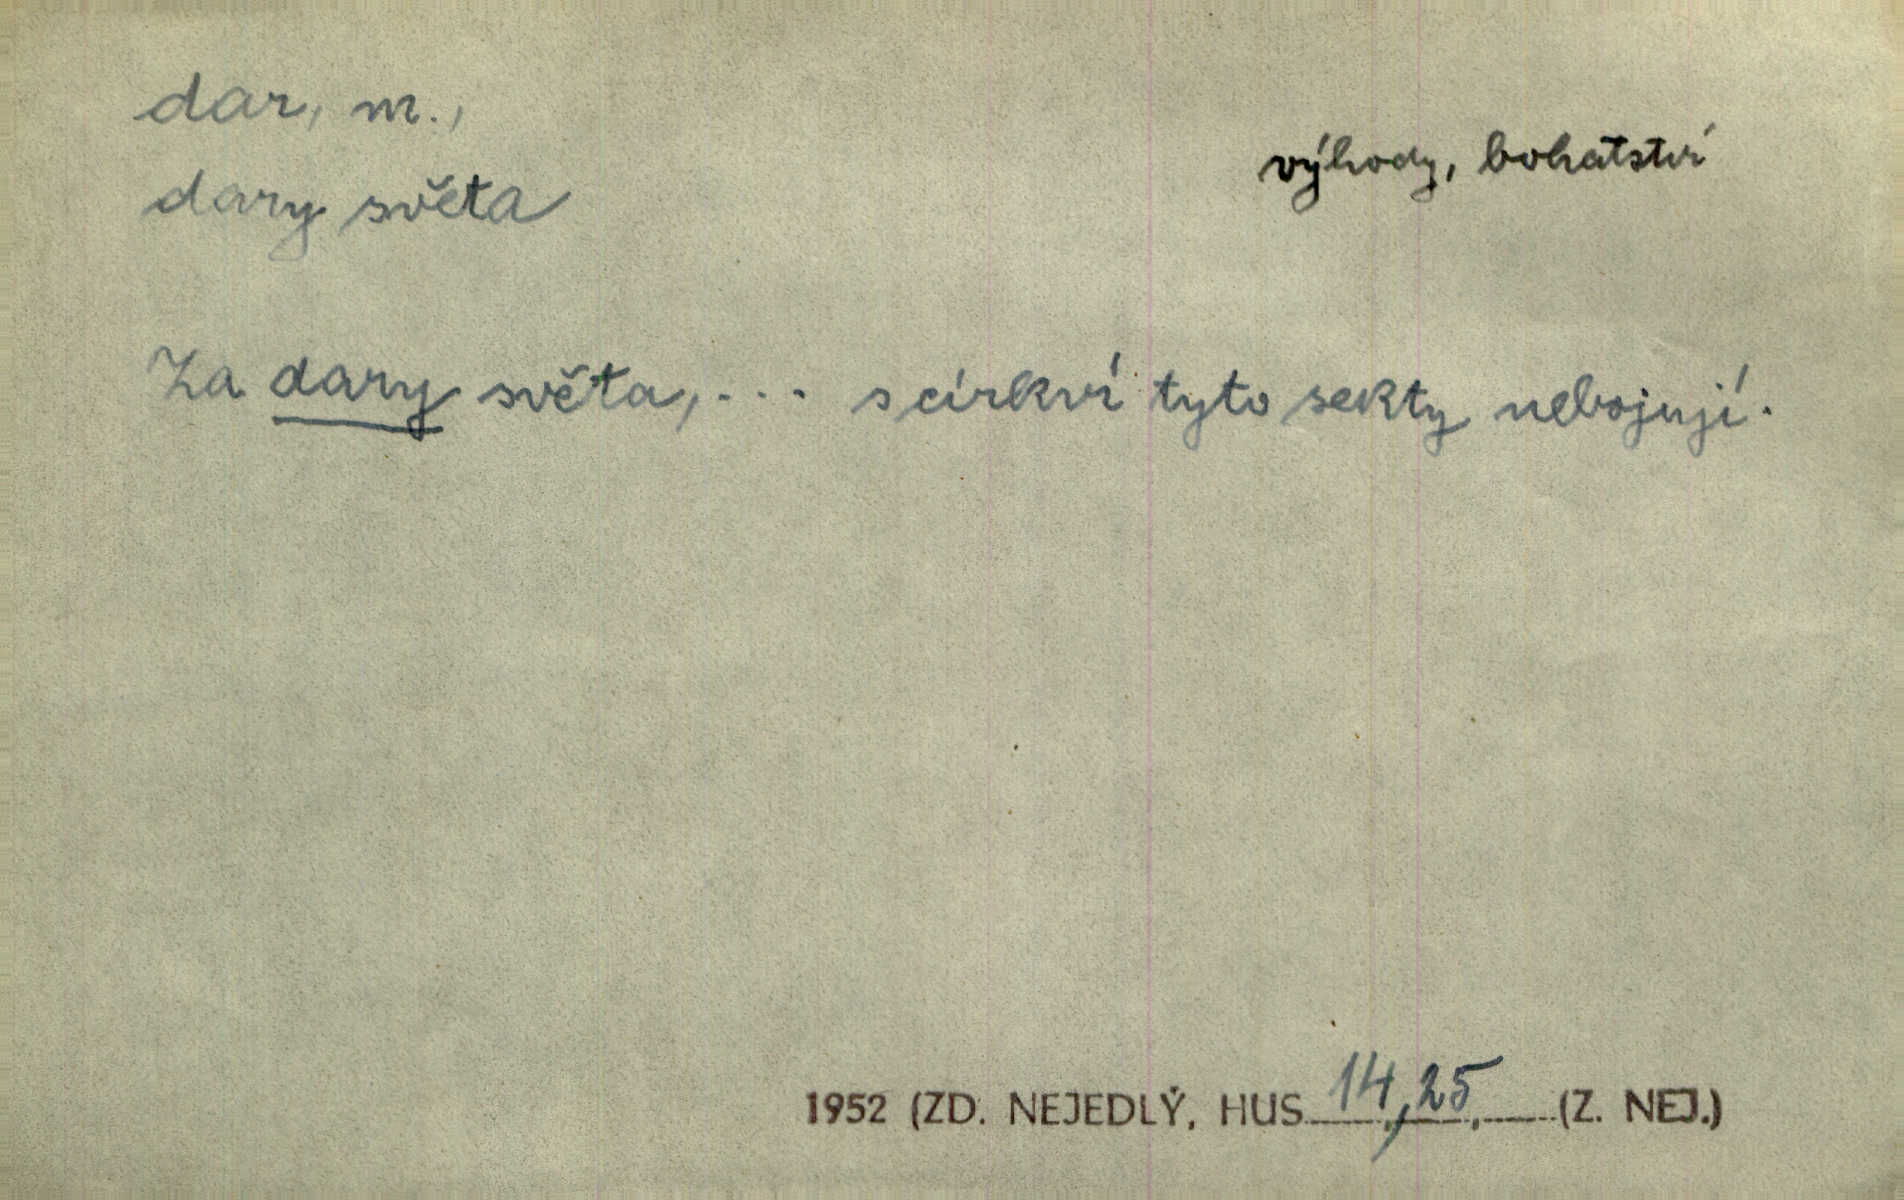 dar, m.,
výhody, bohatství
dary světa
Za dary světa, ... s církví tyto sekty nebojují.
1952 (ZD. NEJEDLÝ, HUS 14, 25, (Z. NEJ.)